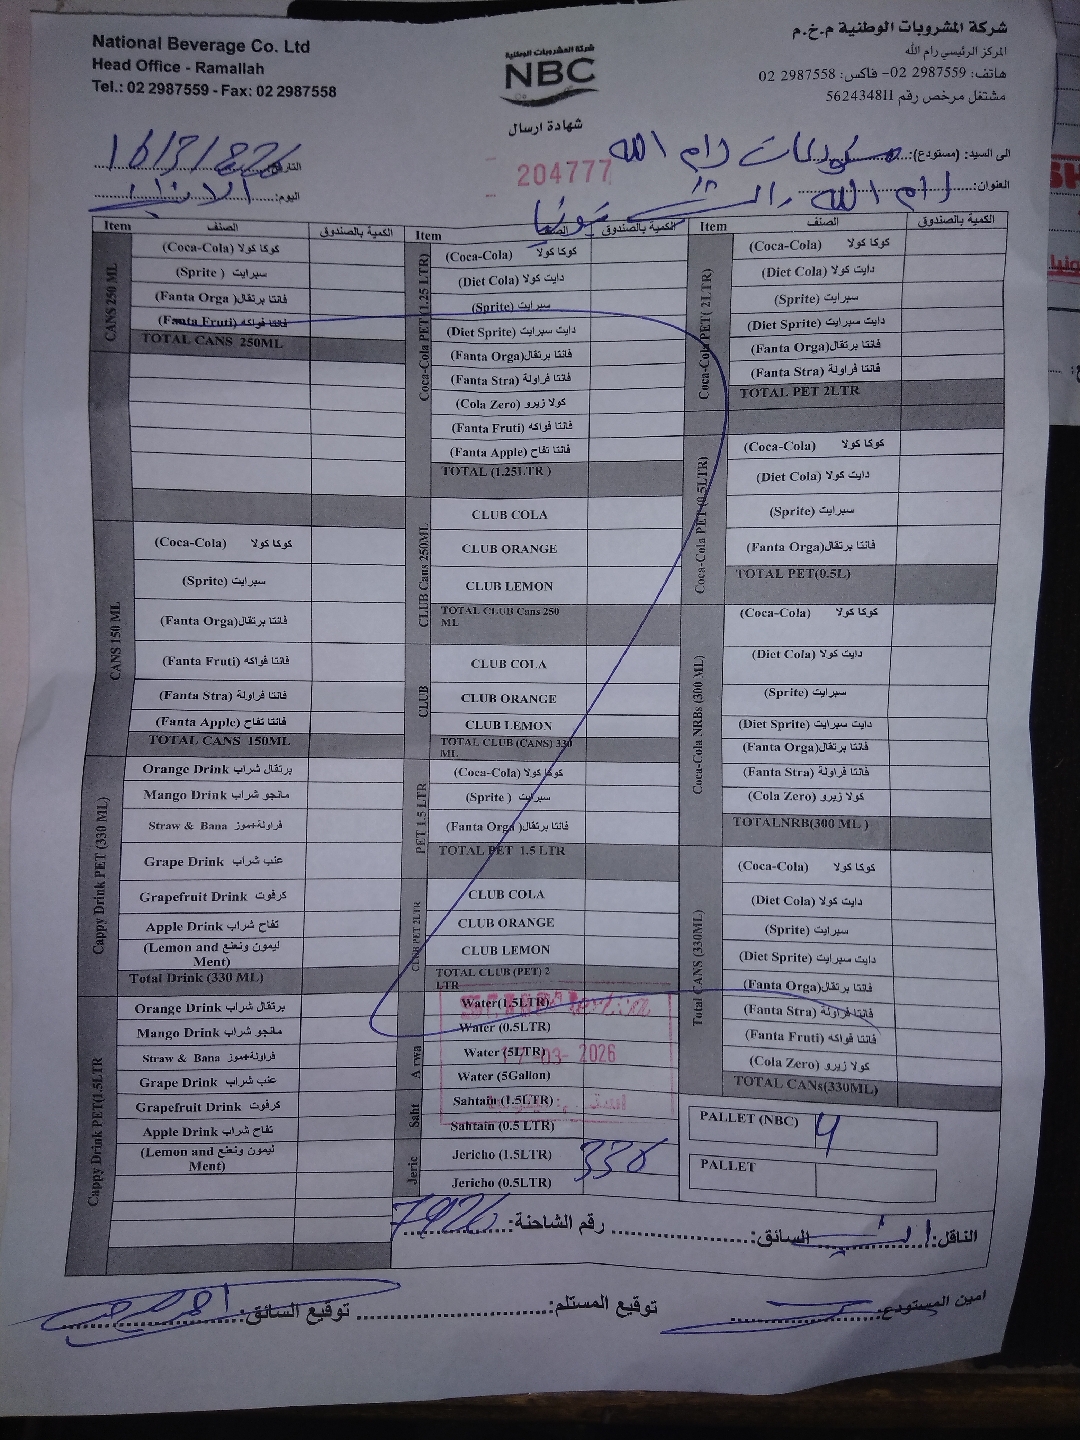 National Beverage Co. Ltd
Head Office - Ramallah
Tel.: 02 2987559 - Fax: 02 2987558
شركة المشروبات الوطنية
NBC
شهادة ارسال
204777
شركة المشروبات الوطنية م.خ.م
المركز الرئيسي رام الله
هاتف: 2987559 02- فاكس: 2987558 02
مشتغل مرخص رقم 562434811
الى السيد: (مستودع): رام الله
العنوان: رام الله
التاريخ:
اليوم: الاثنين
Item الصنف الكمية بالصندوق
CANS 250 ML
(Coca-Cola) كوكا كولا
(Sprite ) سبرايت
(Fanta Orga )فانتا برتقال
(Fanta Fruti) فانتا فواكه
TOTAL CANS 250ML
CANS 150 ML
(Coca-Cola) كوكا كولا
(Sprite) سبرايت
(Fanta Orga)فانتا برتقال
(Fanta Fruti) فانتا فواكه
(Fanta Stra) فانتا فراولة
(Fanta Apple) فانتا تفاح
TOTAL CANS 150ML
Cappy Drink PET (330 ML)
Orange Drink برتقال شراب
Mango Drink مانجو شراب
Straw & Bana فراولة+موز
Grape Drink عنب شراب
Grapefruit Drink كرفوت
Apple Drink تفاح شراب
(Lemon and ليمون ونعنع
Ment)
Total Drink (330 ML)
Cappy Drink PET(1.5LTR
Orange Drink برتقال شراب
Mango Drink مانجو شراب
Straw & Bana فراولة+موز
Grape Drink عنب شراب
Grapefruit Drink كرفوت
Apple Drink تفاح شراب
(Lemon and ليمون ونعنع
Ment)
Item الصنف الكمية بالصندوق
Coca-Cola PET (1.25 LTR)
(Coca-Cola) كوكا كولا
(Diet Cola) دايت كولا
(Sprite) سبرايت
(Diet Sprite) دايت سبرايت
(Fanta Orga)فانتا برتقال
(Fanta Stra) فانتا فراولة
(Cola Zero) كولا زيرو
(Fanta Fruti) فانتا فواكه
(Fanta Apple) فانتا تفاح
TOTAL (1.25LTR )
CLUB Cans 250ML
CLUB COLA
CLUB ORANGE
CLUB LEMON
TOTAL CLUB Cans 250
ML
CLUB
CLUB COLA
CLUB ORANGE
CLUB LEMON
TOTAL CLUB (CANS) 330
ML
PET 1.5 LTR
(Coca-Cola) كوكا كولا
(Sprite ) سبرايت
(Fanta Orga )فانتا برتقال
TOTAL PET 1.5 LTR
CLUB PET 2LTR
CLUB COLA
CLUB ORANGE
CLUB LEMON
TOTAL CLUB (PET) 2
LTR
Arwa
Water(1.5LTR)
Water (0.5LTR)
Water (5LTR)
Water (5Gallon)
-03- 2026
Saht
Sahtain (1.5LTR)
Sahtain (0.5 LTR)
Jeric
Jericho (1.5LTR) 336
Jericho (0.5LTR)
Item الصنف الكمية بالصندوق
Coca-Cola PET( 2LTR)
(Coca-Cola) كوكا كولا
(Diet Cola) دايت كولا
(Sprite) سبرايت
(Diet Sprite) دايت سبرايت
(Fanta Orga)فانتا برتقال
(Fanta Stra) فانتا فراولة
TOTAL PET 2LTR
Coca-Cola PET (0.5LTR)
(Coca-Cola) كوكا كولا
(Diet Cola) دايت كولا
(Sprite) سبرايت
(Fanta Orga)فانتا برتقال
TOTAL PET(0.5L)
Coca-Cola NRBs (300 ML)
(Coca-Cola) كوكا كولا
(Diet Cola) دايت كولا
(Sprite) سبرايت
(Diet Sprite) دايت سبرايت
(Fanta Orga)فانتا برتقال
(Fanta Stra) فانتا فراولة
(Cola Zero) كولا زيرو
TOTALNRB(300 ML )
Total CANS (330ML)
(Coca-Cola) كوكا كولا
(Diet Cola) دايت كولا
(Sprite) سبرايت
(Diet Sprite) دايت سبرايت
(Fanta Orga)فانتا برتقال
(Fanta Stra) فانتا فراولة
(Fanta Fruti) فانتا فواكه
(Cola Zero) كولا زيرو
TOTAL CANs(330ML)
PALLET (NBC) 4
PALLET
الناقل: السائق: رقم الشاحنة: 7926
امين المستودع: توقيع المستلم: توقيع السائق: